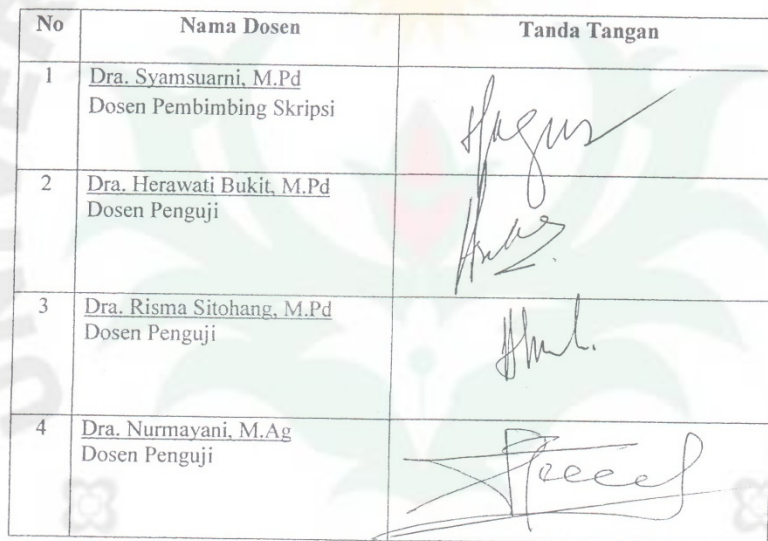 No Nama Dosen Tanda Tangan
1 Dra. Syamsuarni, M.Pd
Dosen Pembimbing Skripsi
2 Dra. Herawati Bukit, M.Pd
Dosen Penguji
3 Dra. Risma Sitohang, M.Pd
Dosen Penguji
4 Dra. Nurmayani, M.Ag
Dosen Penguji